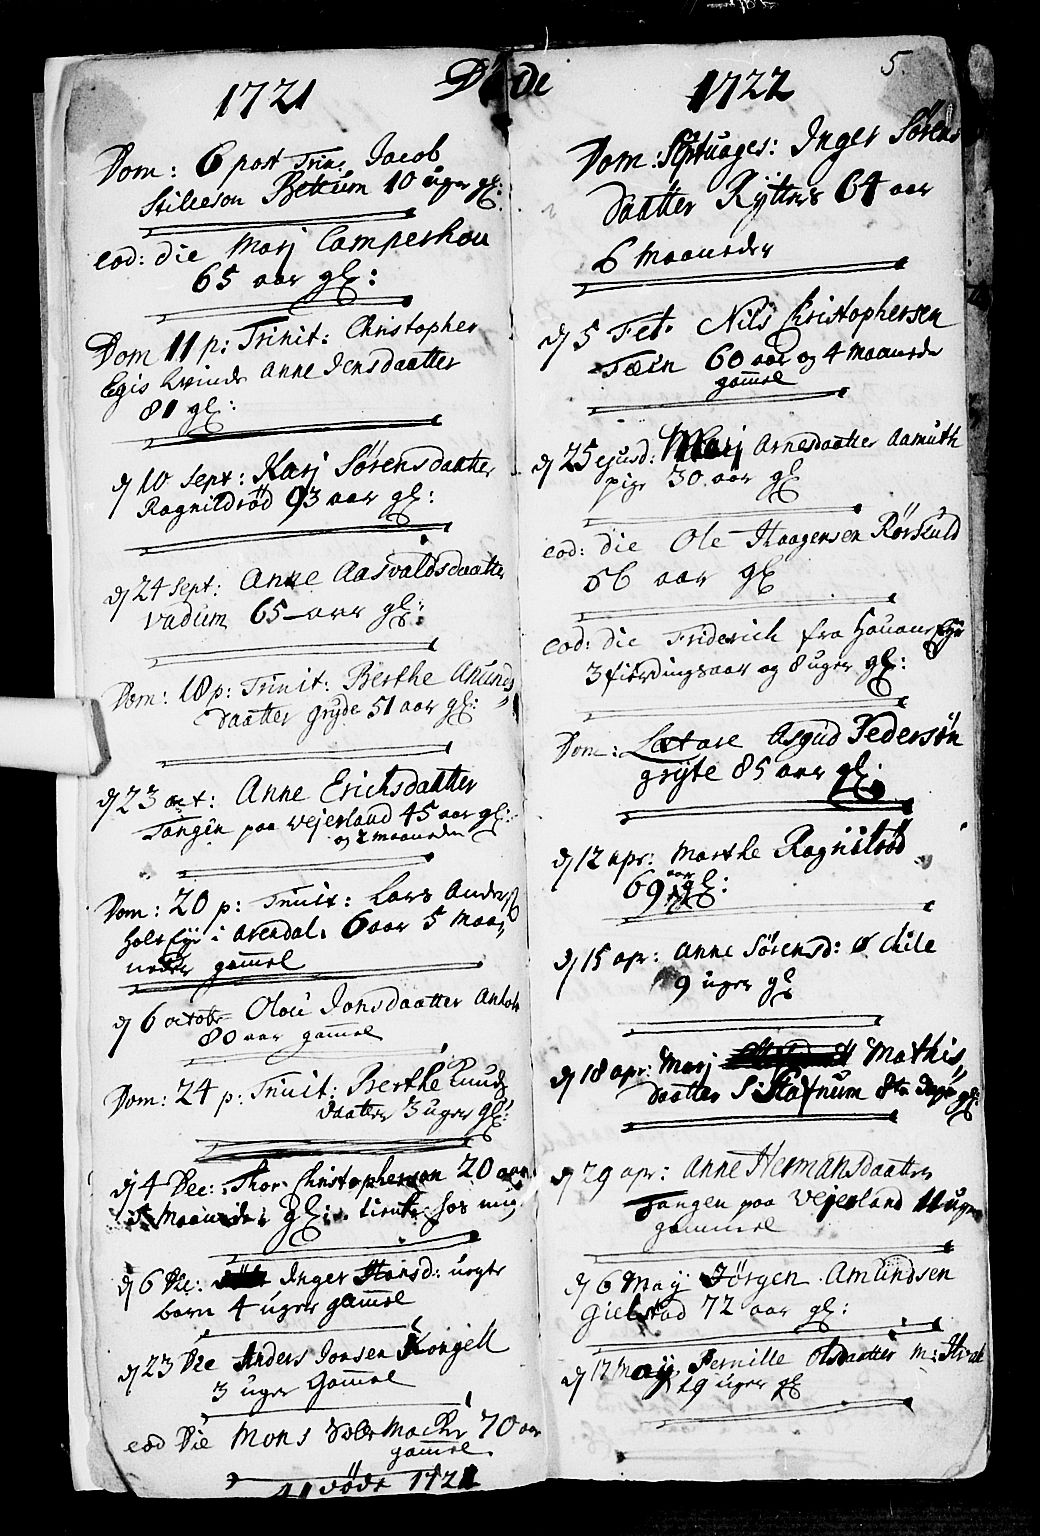 5.
Døde
1721
Dom: 6 post Trin: Jacob
Stilleson Bettum 10 uger gl:
eod: die Marj Camperhou
65 aar gl:
Dom 11 p: Trinit: Christopher
Egis kvinde Anne Jensdaatter
81 gl:
d/ 10 Sept: Karj Sørensdaatter
Ragnildrød 93 aar gl:
d/ 24 Sept: Anne Aasvaldsdaatter
Vadum 65 aar gl:
Dom: 18 p: Trinit: Berthe Amunds
daatter gryde 51 aar gl:
d/ 23 oct: Anne Erichsdaatter
Tangen paa Vejerland 45 aar gl:
og 2 maaneder
Dom: 20 p: Trinit: Lars Anders
i Arendal. 6 aar 5 Maa,
neder gammel
d/ 6 octobr Olou Jonsdaatter
80 aar gammel
Dom: 24 p: Trinit: Berthe Knuds
daatter 3 uger gl:
d/ 4 Dec: Thor Christophersen 20 aar
Maaneder gl: tiente hos mig
d/ 6 Dec: Inger Hansd: uegte
barn 4 uger gammel
d/ 23 Dec Anders Jonsen Kongell
3 uger Gamel
eod Die Mons 70 aar
gamel
døde 1721
1722
Dom: Septuages: Inger Sørens
daatter Rytters 64 aar
6 Maaneder
d/ 5 Feb. Nils Christophersen
60 aar og 4 Maaneder
gammel
d/ 25 ejusd: Marj Arnesdaatter Aamuth
pige 30 aar gl
eod: die Ole Haagensen Rørkuld
56 aar gl
eod: die Friderich fra
3 fierdingsaar og 8 uger gl:
Dom: Lætare Asgud Pedersøn
gryte 85 aar gl:
d/ 12 apr: Marthe Ragnilrød
69 aar gl:
d/ 15 apr: Anne Sørensd:
9 uger gl
d/ 18 apr: Marj Mathis,
daatter 8te dage gl:
d/ 29 apr: Anne Hermansdaatter
Tangen paa Vejerland 11 uger
gammel
d/ 6 May Jørgen Amundsen
Gielstad 72 aar gl:
d/ 17 May Pernille Olsdaatter
19 uger gl